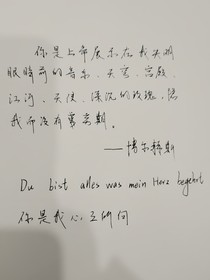 你是上帝展示在我失明
眼睛前的音乐、天穹、宫殿、
江河、天使、深沉的玫瑰,隐
而没有穷期。
——博尔赫斯
Du bist alles was mein Herz begehrt
你是我心之所向